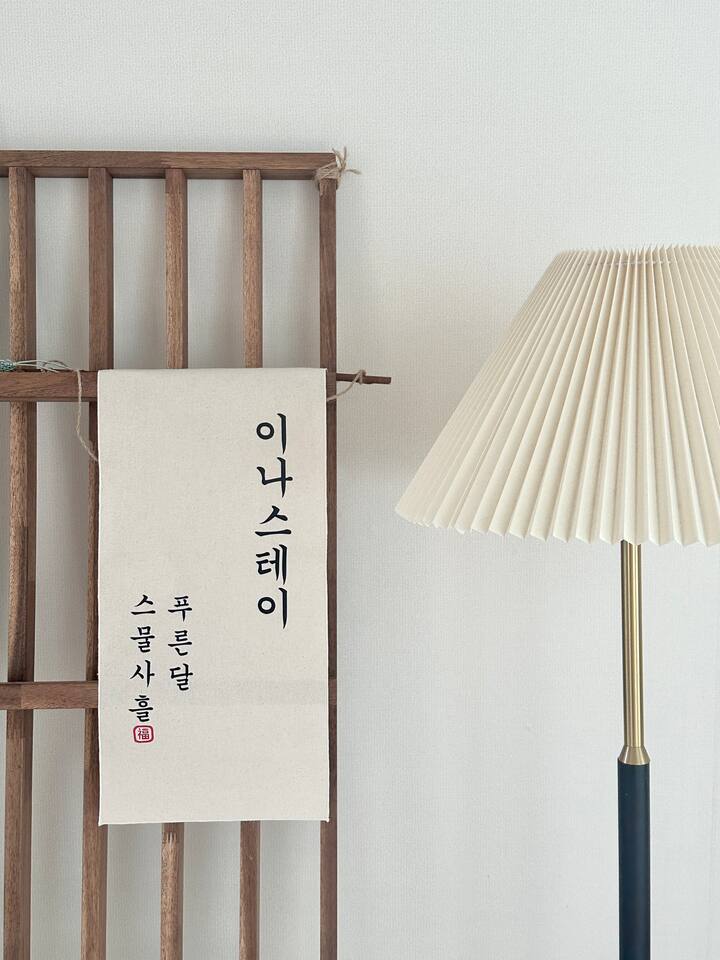 이나스테이
푸른달
스물사흘
福